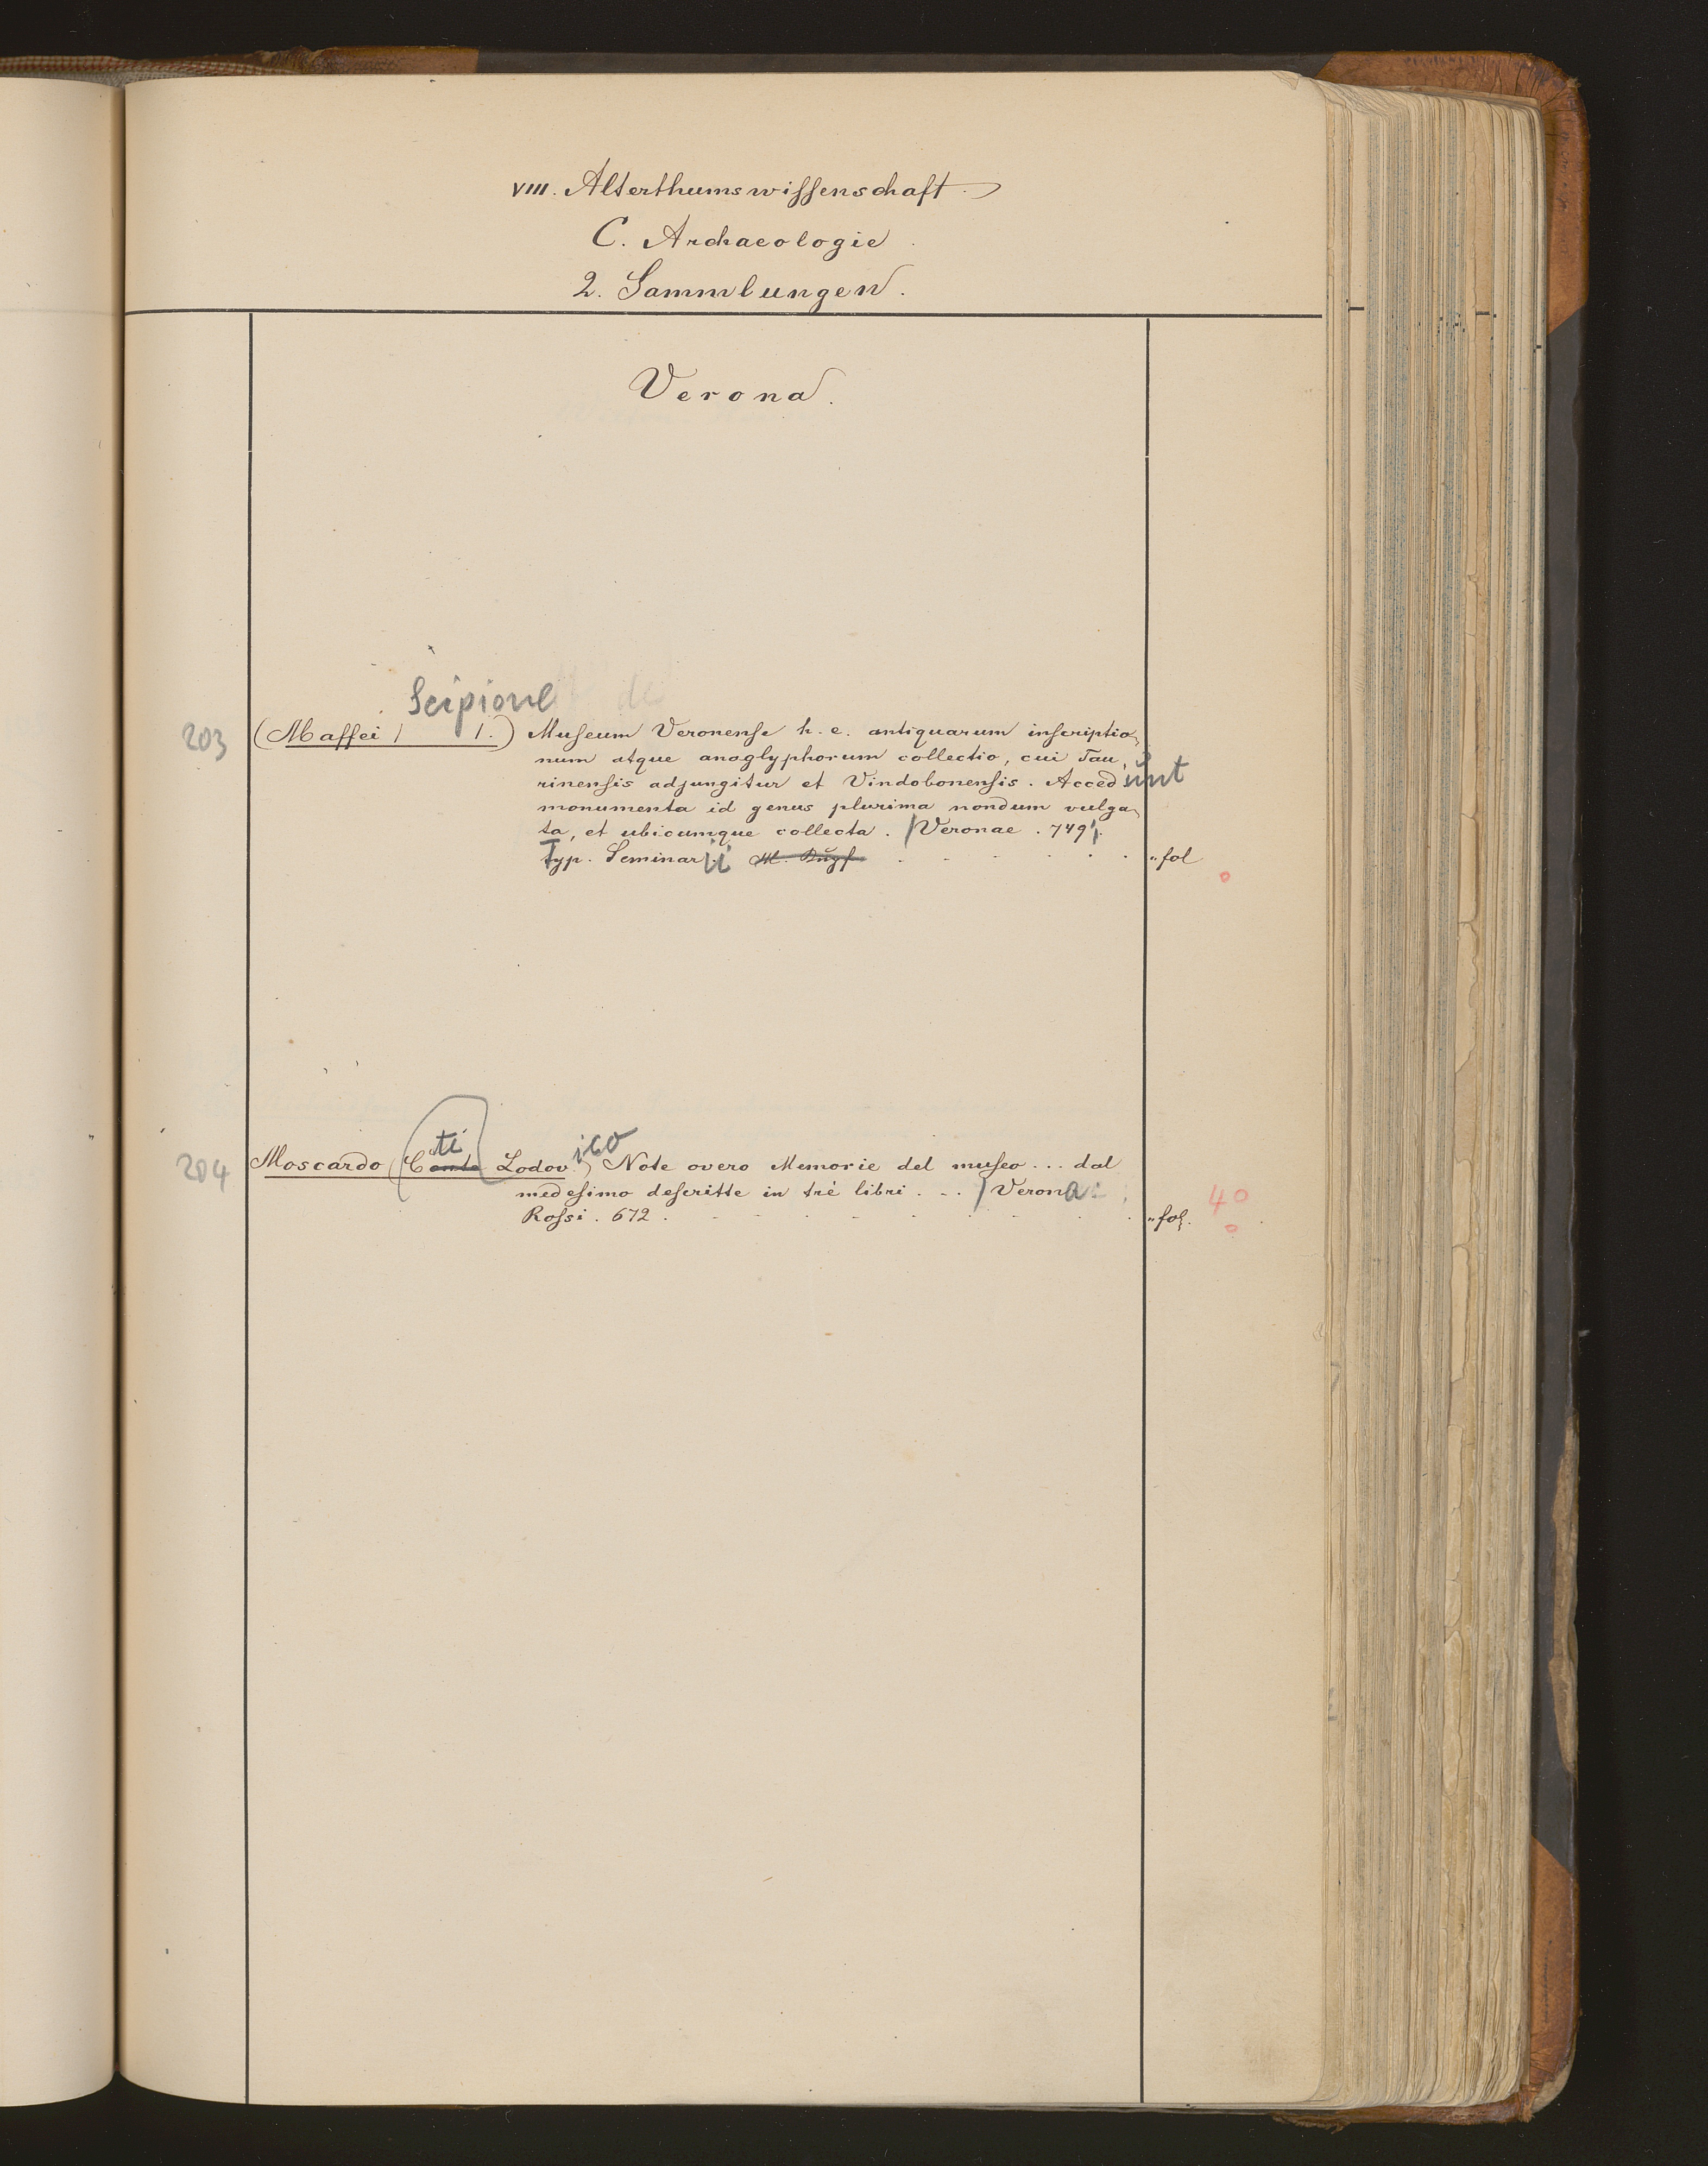 VIII. Alterthumswissenschaft
C. Archaeologie
2. Sammlungen.
Verona.
Scipione
203 (Maffei / /.) Museum Veronense h. e. antiquarum inscriptio
num atque anaglyphorum collectio, cui Tau
rinensis adjungitur et Vindobonensis. Accedunt
monumenta id genus plurima nondum vulga
ta, et ubicumque collecta. / Veronae. 749.
Typ. Seminarii fol
204 Moscardo (Cte Conte Lodovico) Note overo Memorie del museo ... dal
medesimo descritte in trè libri . . . / Verona 40
Rossi. 672. fol.